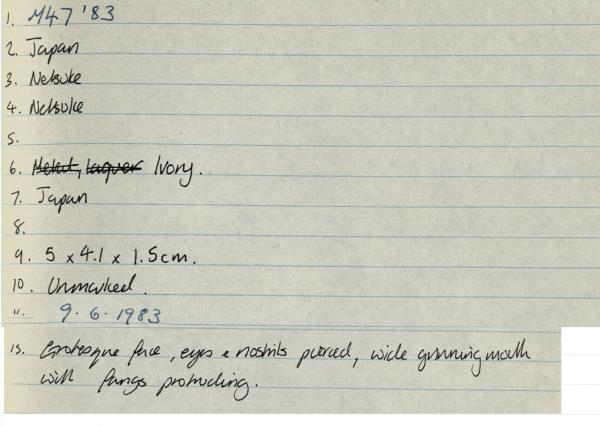 1. M47 '83
2. Japan
3. Netsuke
4. Netsuke
5.
6. Metal, laquer Ivory.
7. Japan
8.
9. 5 x 4.1 x 1.5cm.
10. Unmarked.
11. 9.6.1983
15. Grotesque face, eyes & nostrils pierced, wide grinning mouth
with fangs protruding.